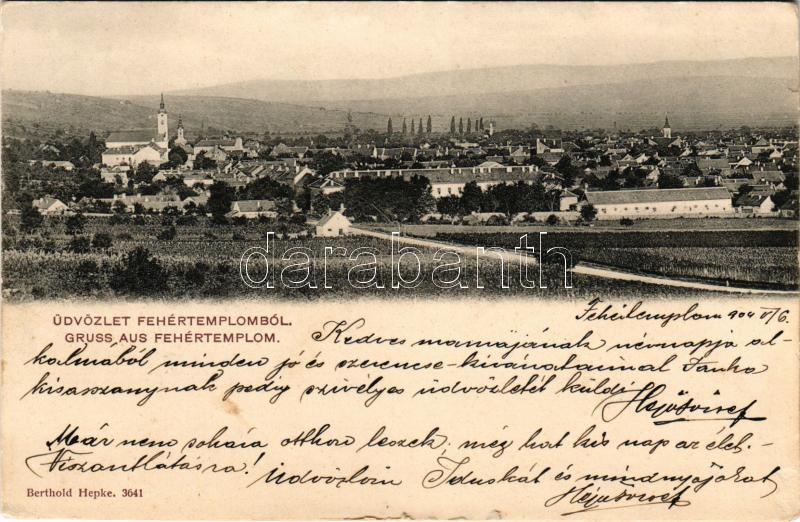 darabanth
ÜDVÖZLET FEHÉRTEMPLOMBÓL.
GRUSS AUS FEHÉRTEMPLOM.
Fehértemplom 904 V/6.
Kedves mamájának névnapja al-
kalmából minden jó és szerencse-kivánataimat Janka
kisasszonynak pedig szivélyes üdvözletét küldi
Már nem sokáig otthon leszek, még hat kis nap az élet.-
Viszontlátásra! Üdvözlöm és mindnyájokat
Berthold Hepke. 3641